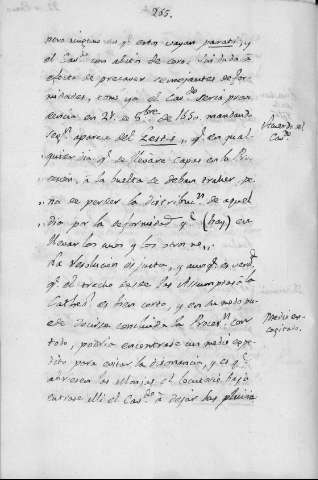 255.
pero ninguno en qᵉ estos vayan parati, y
el Casᵈᵒ con abito de coro. Sin duda à
efecto de precaver semejantes defor-
midades, como yo el Casᵈᵒ seria pron
en 24 de 8ᵇʳᵉ de 1650. mandando
segⁿ aparece del Testᵒ, qᵉ en qual
quier dia qᵉ se llevare capas en la Pro
cesion, à la buelta se deban traher, pe
na de perder la distribucⁿ de aquel
dia por la deformidad qᵉ (hay) en
llevar los unos y los otros no.
La resolucion es justa, y aunqᵉ es verdᵈ
qᵉ el trecho desde la Assumpta à la
Cathedˡ es bien corto, y en su modo pu
ede decirse concluida la Procesⁿ, con
todo, podria encontrarse un medio expe
dito para evitar la disonancia, y es qᵉ
abriesen las Monjas el locutorio bajo
entrase alli el Casᵈᵒ à dejar las pluvia
Acuerdo del
Casᵈᵒ
Medio en